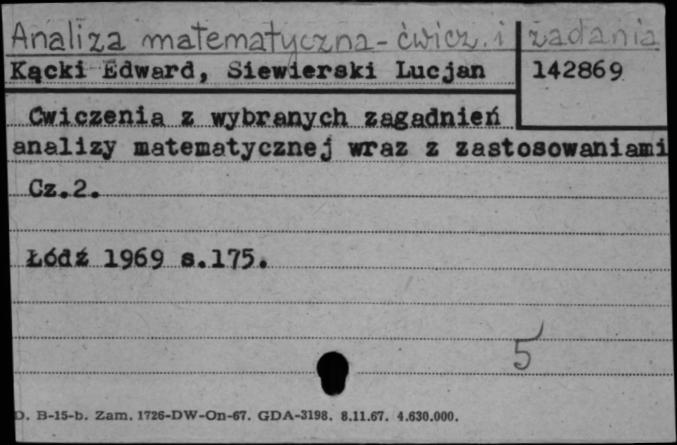 Analiza matematyczna - ćwicz. i zadania
Kącki Edward, Siewierski Lucjan 142869
Ćwiczenia z wybranych zagadnień
analizy matematycznej wraz z zastosowaniami
Cz.2.
Łódź 1969 s.175.
5
D. B-15-b. Zam. 1726-DW-On-67. GDA-3198. 8.11.67. 4.630.000.